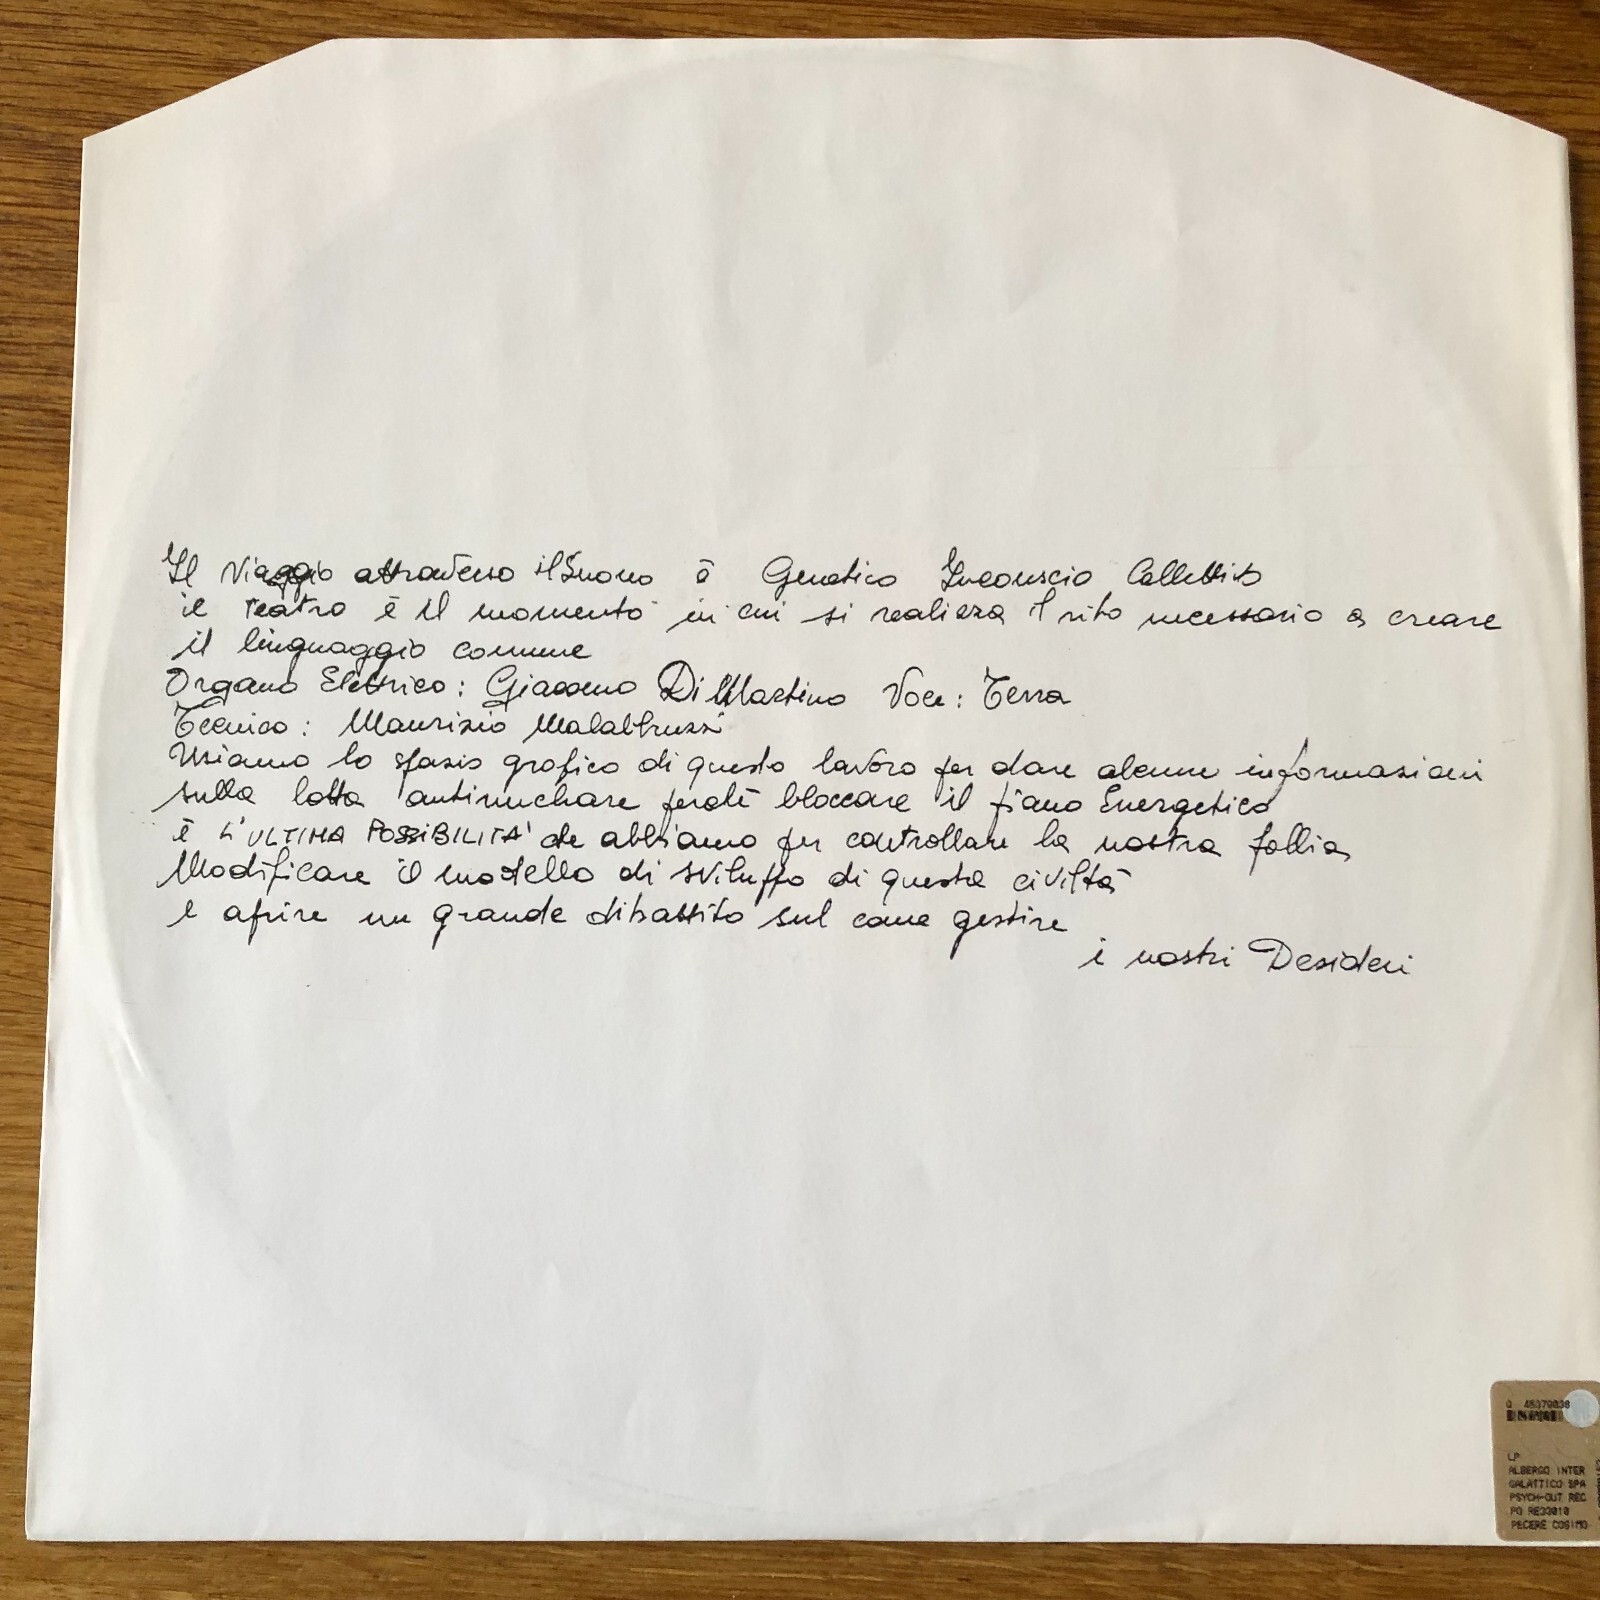 Il Viaggio attraverso il Suono è Genetico Inconscio Collettivo
il teatro è il momento in cui si realizza il rito necessario a creare
il linguaggio comune
Organo Elettrico: Giacomo Di Martino Voce: Terra
Tecnico: Maurizio Malabruzzi
Usiamo lo spazio grafico di questo lavoro per dare alcune informazioni
sulla lotta antinucleare perchè bloccare il piano Energetico
è L'ULTIMA POSSIBILITA' che abbiamo per controllare la nostra follia
Modificare il modello di sviluppo di questa civiltà
e aprire un grande dibattito sul come gestire
i nostri Desideri
LP
ALBERGO INTER
GALATTICO SPA
PSYCH-OUT REC
PO RE33010
PECERE COSIMO